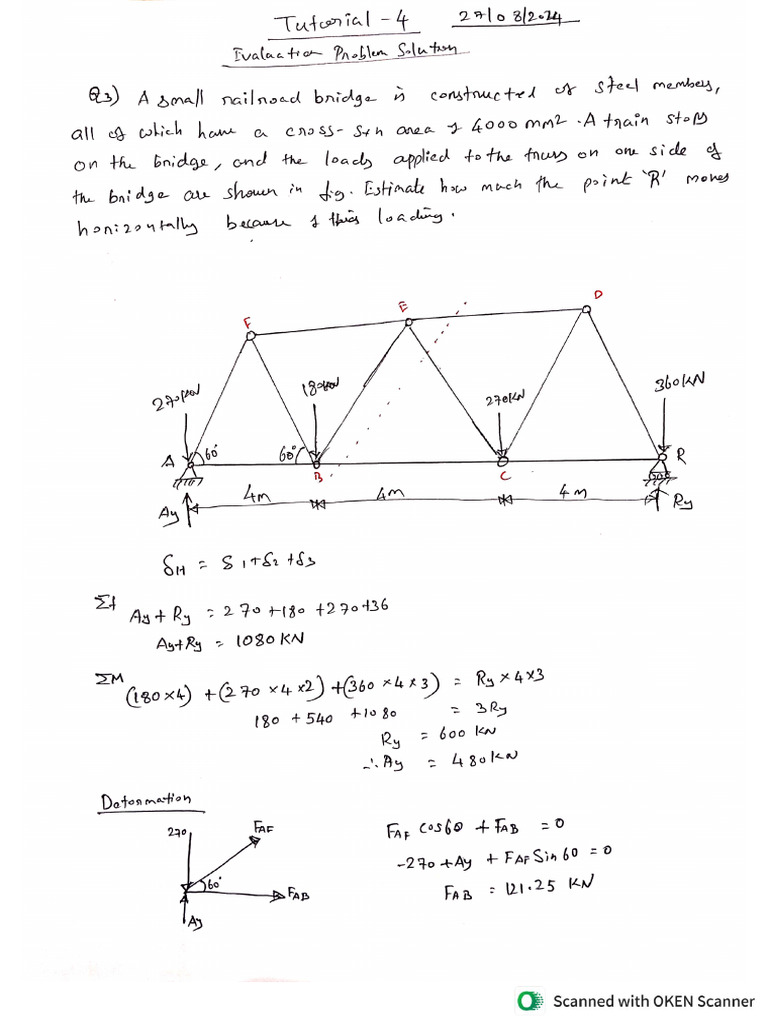 Tutorial - 4 27/08/2024
Evaluation Problem Solution
Q3) A small railroad bridge is constructed of steel members,
all of which have a cross-sxn area of 4000 mm². A train stops
on the bridge, and the loads applied to the truss on one side of
the bridge are shown in fig. Estimate how much the point 'R' moves
horizontally because of this loading.
F E D
270KN 180KN 270KN 360KN
A 60° 60° B C R
Ay 4m 4m 4m Ry
δH = δ1+δ2+δ3
Σf Ay + Ry = 270+180+270+36
Ay+Ry = 1080KN
ΣM (180×4) + (270×4×2) + (360×4×3) = Ry×4×3
180 + 540 + 1080 = 3Ry
Ry = 600 KN
∴ Ay = 480KN
Deformation
270 FAF
A 60° FAB
Ay
FAF cos60 + FAB = 0
-270 + Ay + FAF Sin60 = 0
FAB = 121.25 KN
Scanned with OKEN Scanner